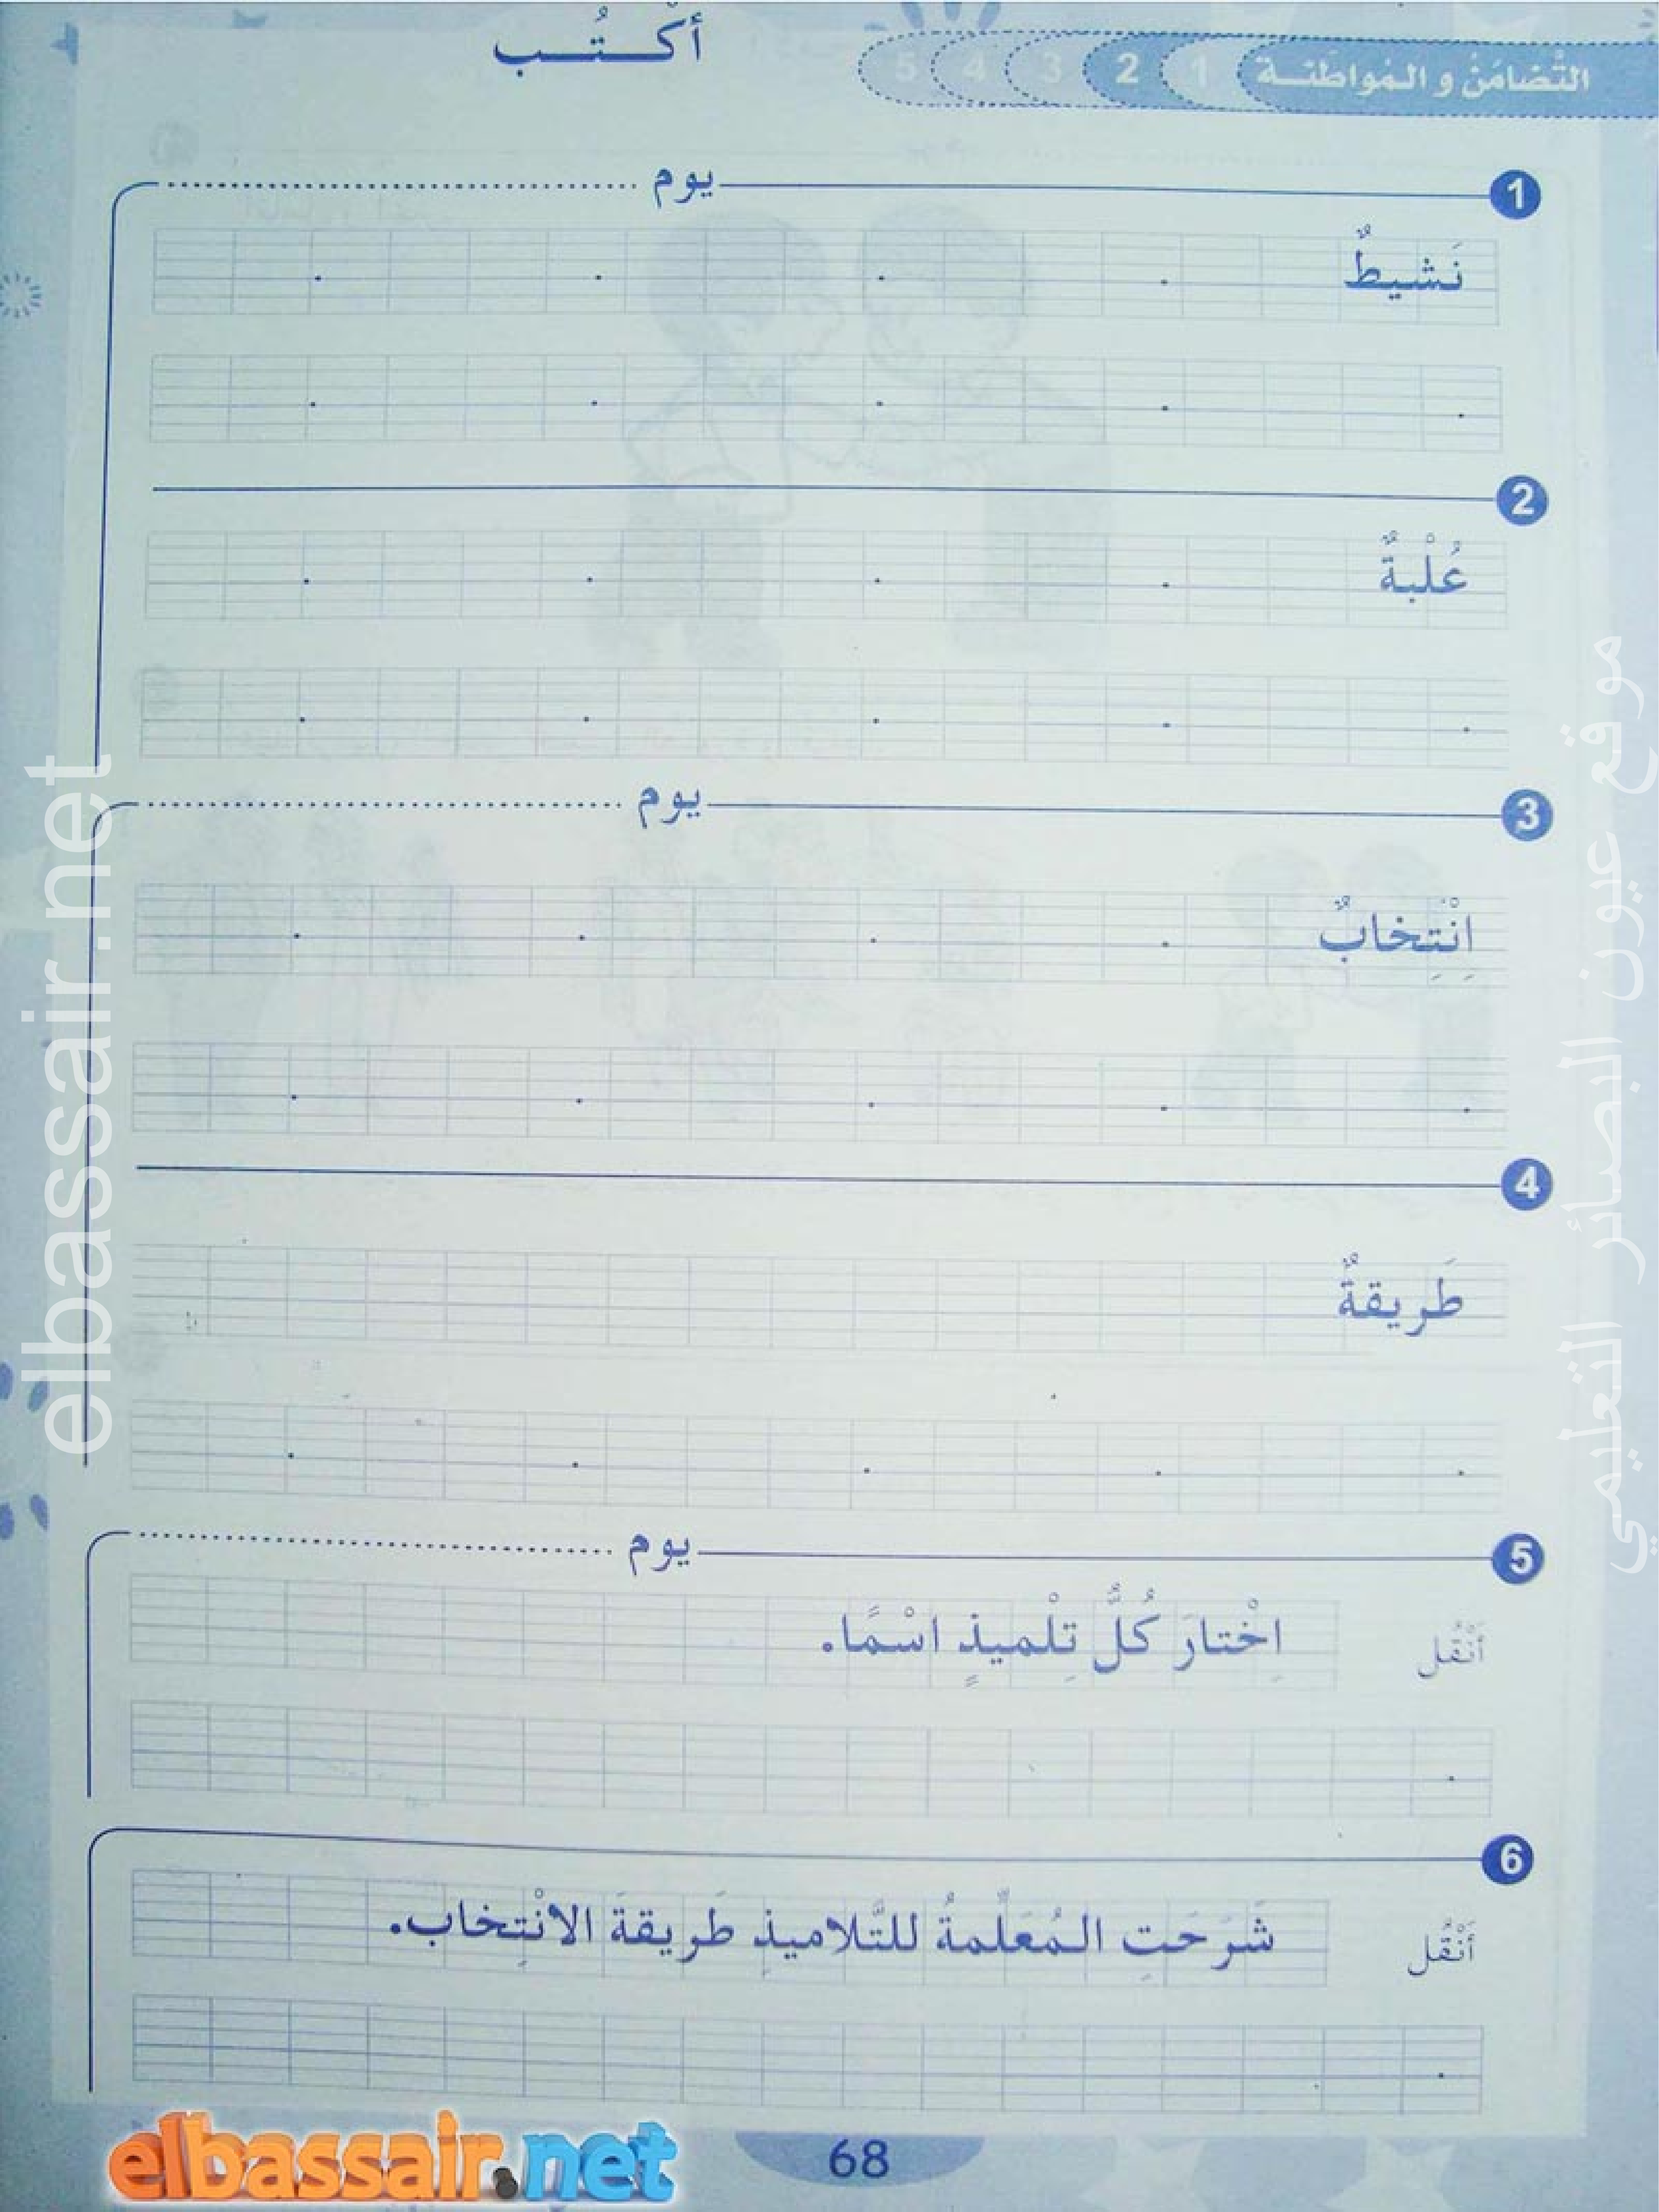 أَكْتُب
التَّضامُنُ و المُواطَنة 1 2 3 4 5
1 يوم
نَشيطٌ
2
عُلْبةٌ
3 يوم
اِنْتِخابٌ
4
طَريقةٌ
5 يوم
أَنْقُل اِخْتارَ كُلُّ تِلْميذٍ اسْمًا.
6
أَنْقُل شَرَحَتِ المُعَلِّمةُ للتَّلاميذِ طَريقةَ الانْتِخاب.
68
elbassair.net
elbassair.net
موقع عيون البصائر التعليمي